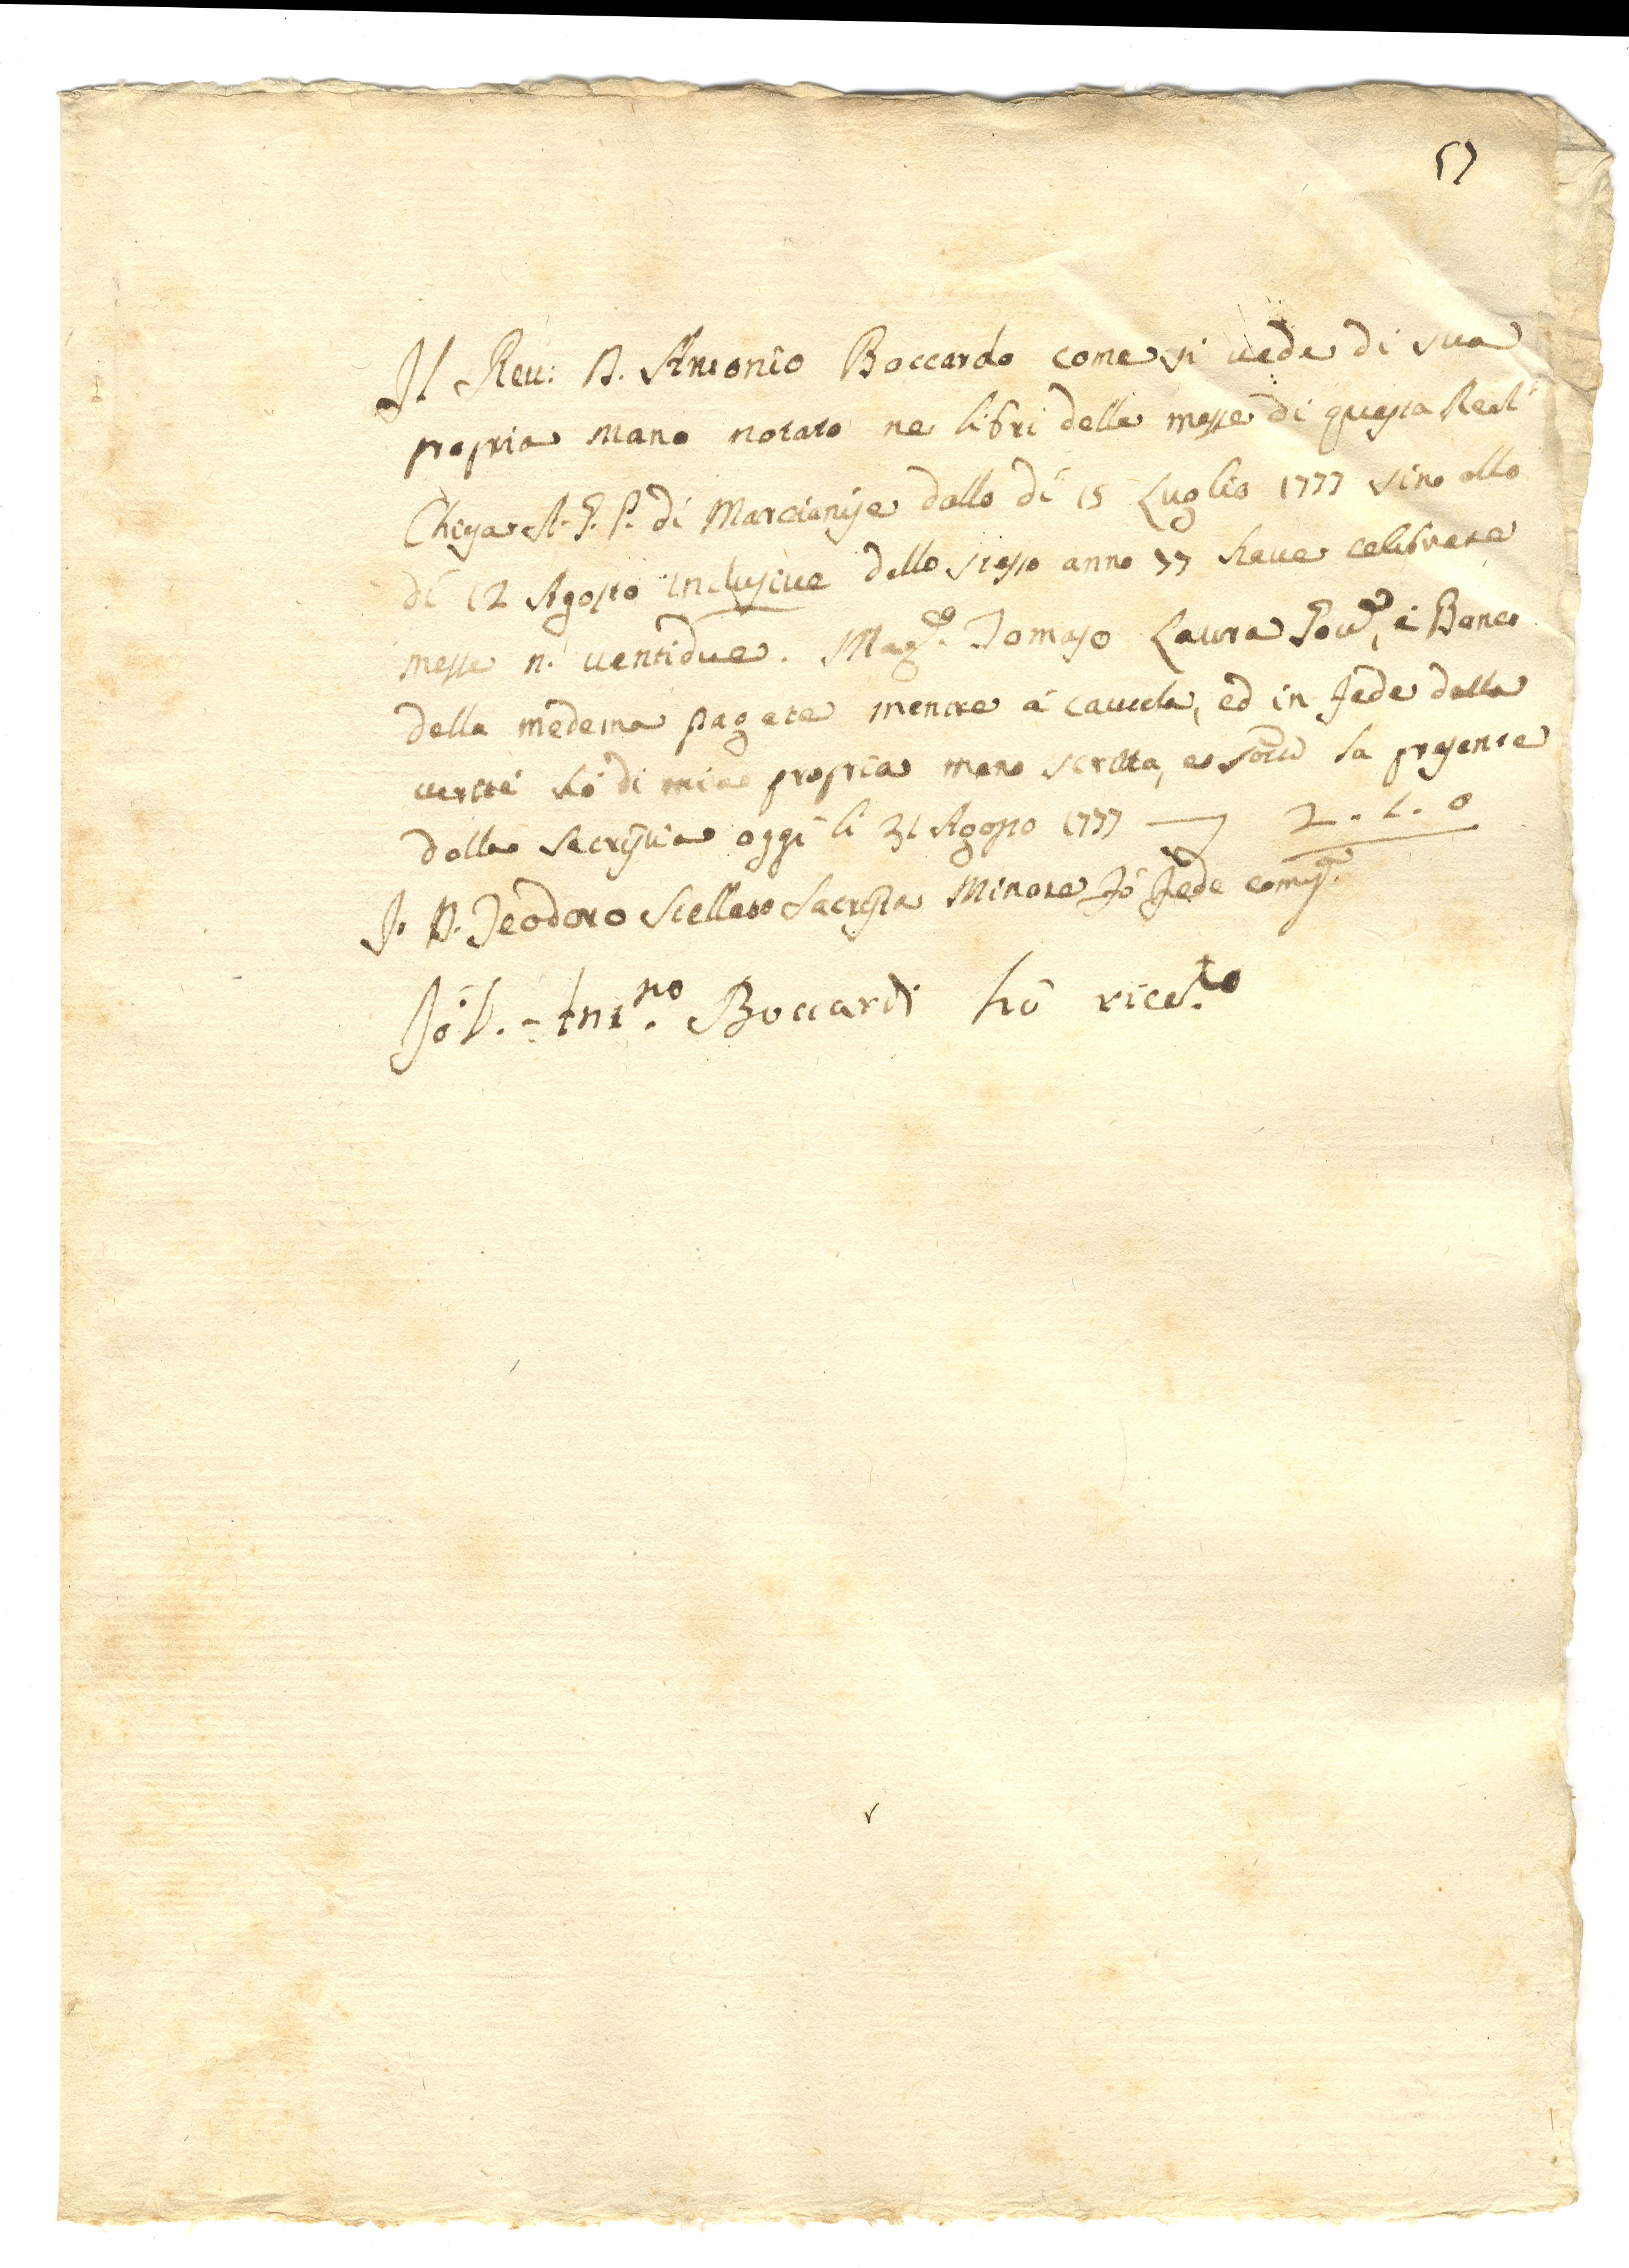 57
Il Reu: D. Antonio Boccardo come si uede di sua
propria mano notato ne libri delle messe di questa Real
Chiesa A. G. P. di Marcianise dallo dì 15 Luglio 1777 sino allo
dì 12 Agosto inclusive dello stesso anno 77 haue celebrate
messe n. uentidue. Mag.co Tomaso Laura Gou.re, è Banco
della medema pagate mentre à cautela, ed in fede della
uerità hò di mia propria mano scritta, e la presente
dalla Sacristia oggi li 31 Agosto 1777 — 2.2.0
Io D. Teodoro Scellato Sacrista Minore fò fede come s.a
Io D. Ant.no Boccardi hò riceu.to